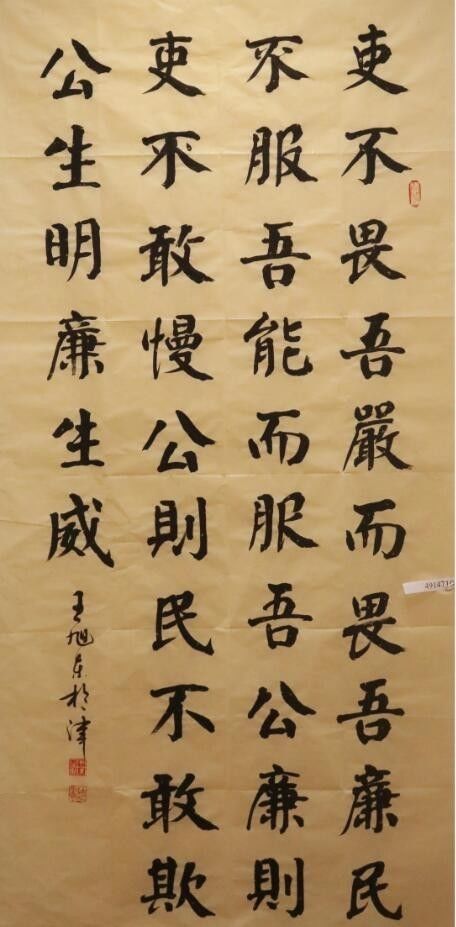 吏不畏吾嚴而畏吾廉民
不服吾能而服吾公廉則
吏不敢慢公則民不敢欺
公生明廉生威
王旭東於津